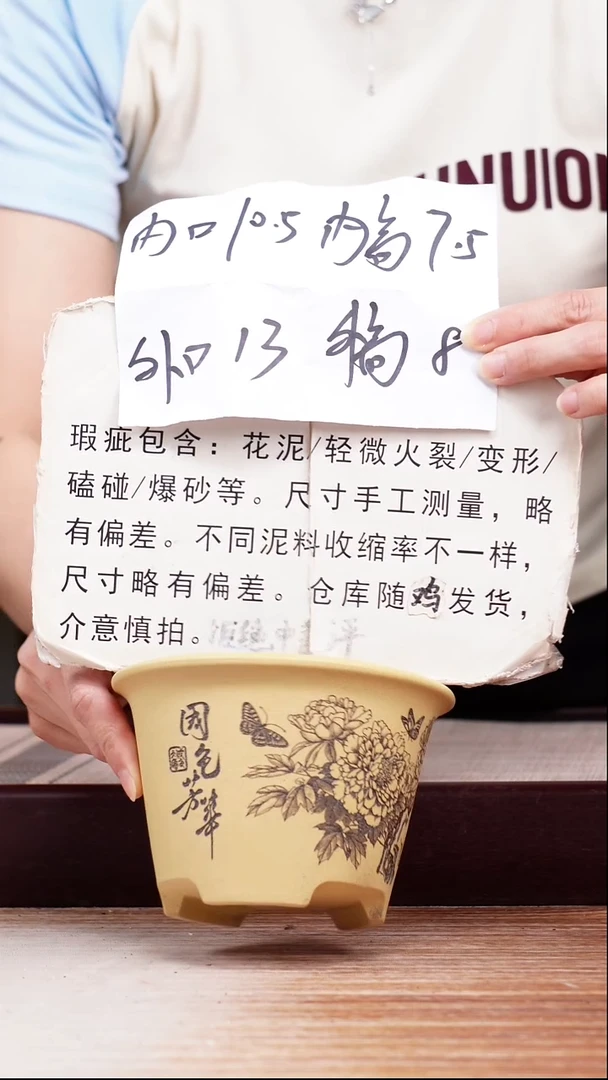 UNUION
内口10.5 内高7.5
外口13 外高8
瑕疵包含：花泥/轻微火裂/变形/
磕碰/爆砂等。尺寸手工测量，略
有偏差。不同泥料收缩率不一样，
尺寸略有偏差。仓库随鸡发货，
介意慎拍。
国色芳华